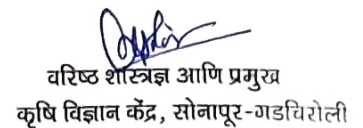 वरिष्ठ शास्त्रज्ञ आणि प्रमुख
कृषि विज्ञान केंद्र, सोनापूर-गडचिरोली